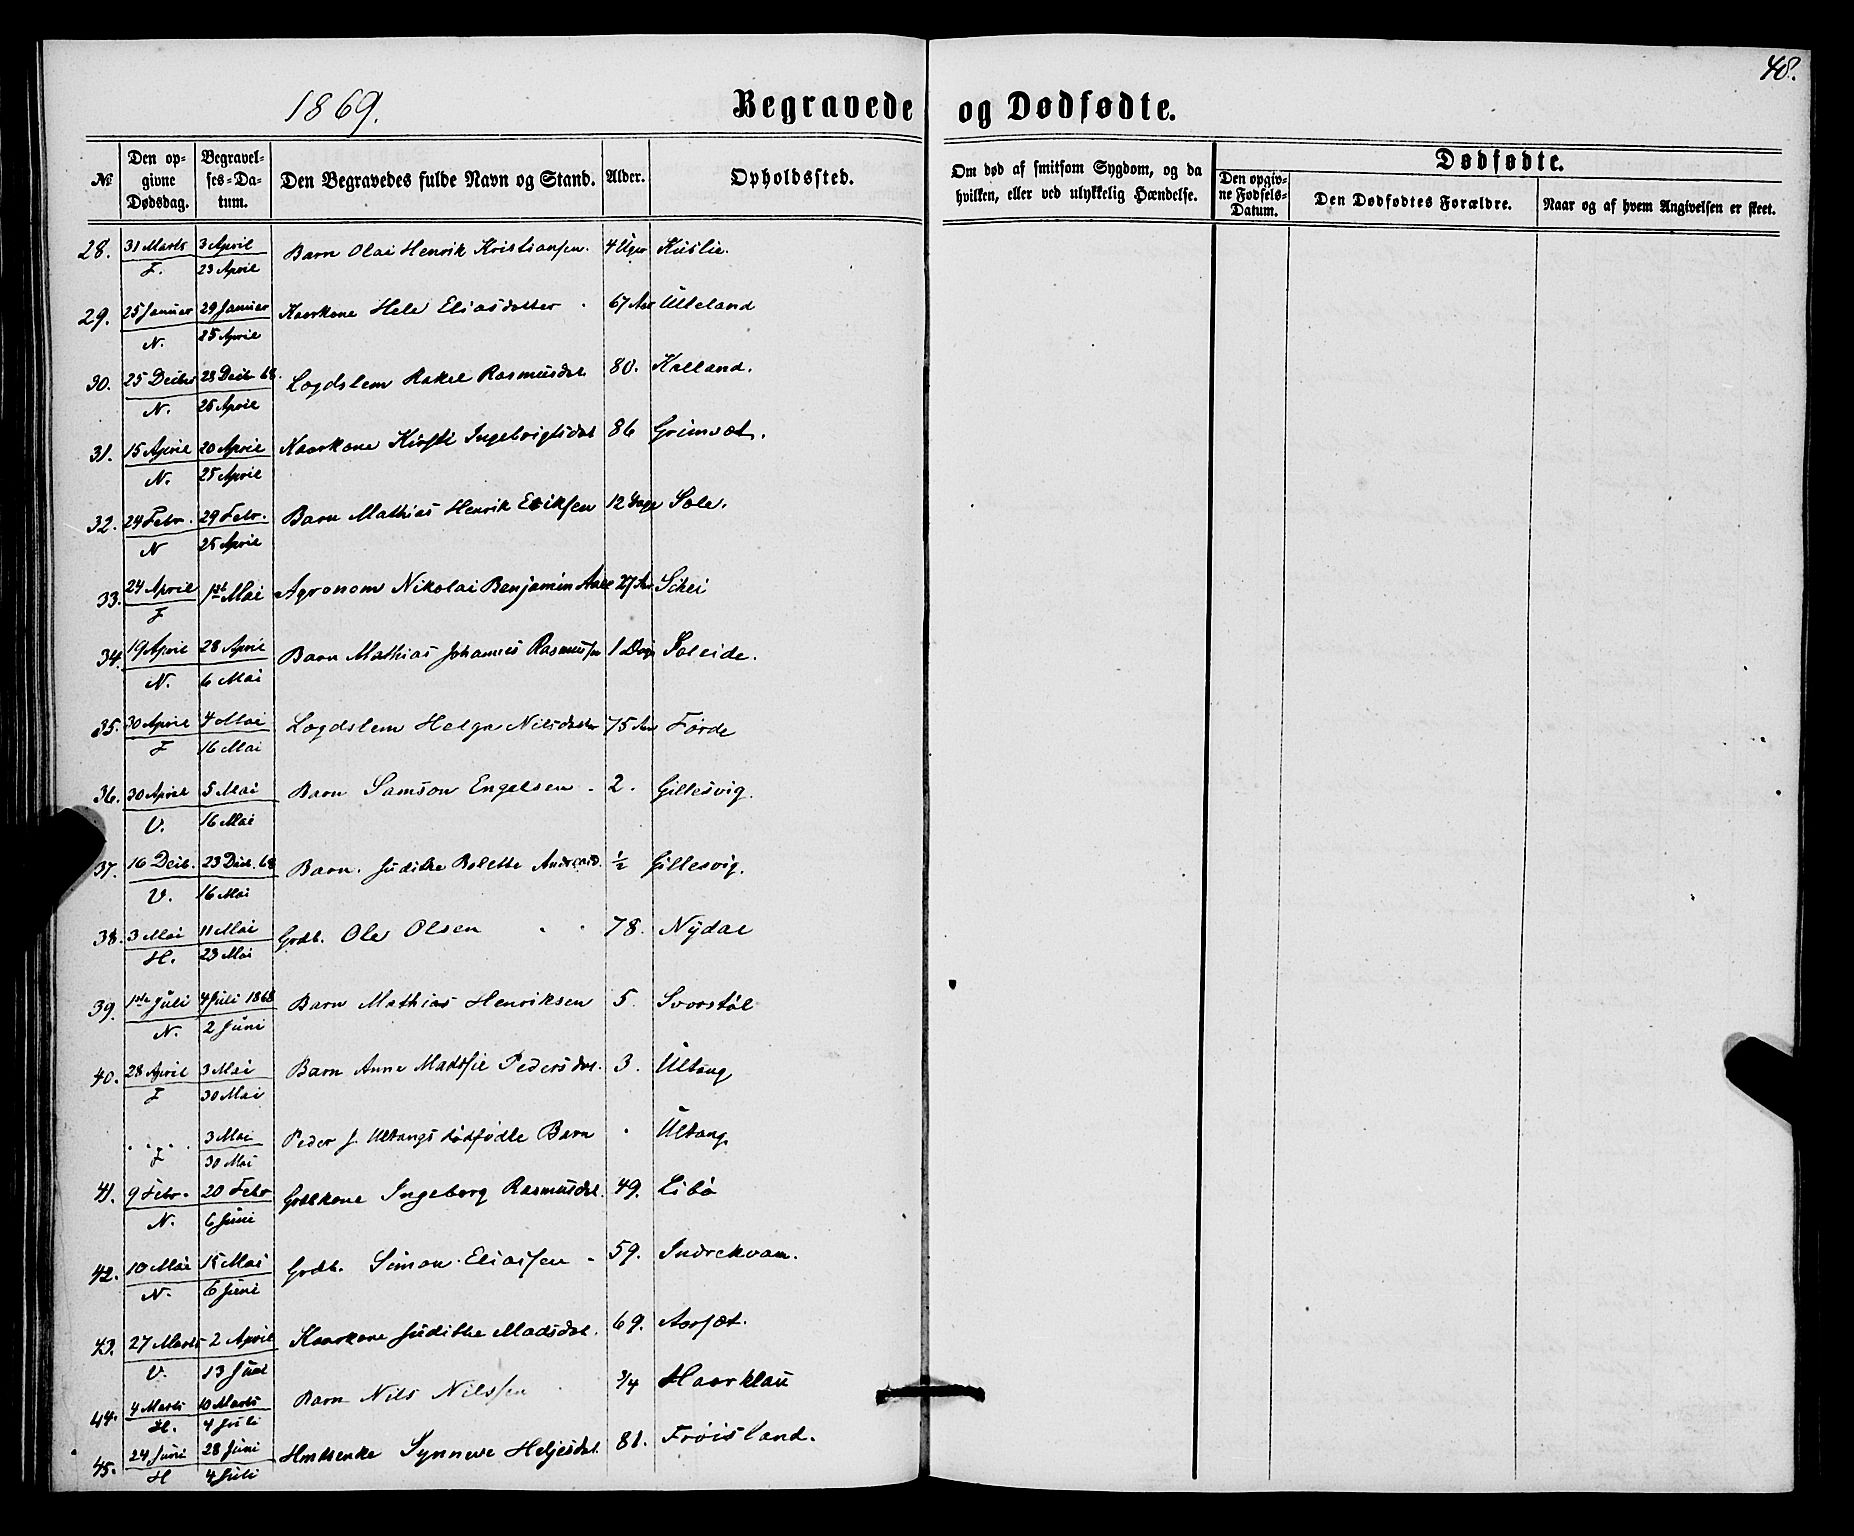 48.
1869.
Begravede og Dødfødte.
No.
Den opgivne Dødsdag.
Begravelses-Datum.
Den Begravedes fulde Navn og Stand.
Alder.
Opholdssted.
Om død af smitsom Sygdom, og da hvilken, eller ved ulykkelig Hændelse.
Dødfødte.
Den opgivne Fødsels-Datum.
Den Dødfødtes Forældre.
Naar og af hvem Angivelsen er skeet.
28. 31 Marts 3 April Barn Olai Henrik Kristiansen. 4 Uger Kuslie.
F. 23 April
29. 25 Januar 29 Januar Kaarkone Hele Eliasdatter 67 Aar Ulleland
N. 25 April
30. 25 Decbr 28 Decb 68. Lægdslem Rakel Rasmusdat. 80. Kalland.
N. 25 April
31. 15 April 20 April Kaarkone Kirsti Ingebrigtsdat 86 Grimsæt.
N. 25 April
32. 24 Febr. 29 Febr. Barn Mathias Henrik Eriksen 12 Dage Sole.
N 25 April
33. 24 April 1ste Mai Agronom Nikolai Benjamin 27 Aar Schei
F
34. 19 April 28 April Barn Mathias Johannes Rasmussen 1 Dag Soleide.
N. 6 Mai
35. 30 April 4 Mai Lægdslem Helga Nilsdatter 75 Aar Førde
F 16 Mai
36. 30 April 5 Mai Barn Samson Engelsen. 2. Gillesvig.
V. 16 Mai
37. 16 Decb. 23 Decb. 68 Barn. Judithe Bolette Andersd. ½ Gillesvig.
V. 16 Mai
38. 3 Mai 11 Mai Grdb. Ole Olsen 78. Nydal
H. 23 Mai
39. 1ste Juli 4 Juli 1868 Barn Mathias Henriksen 5. Svorstøl
N. 2 Juni
40. 28 April 3 Mai Barn Anne Madtsie Pedersdat. 3. Ultang
F 30 Mai
3 Mai Peder J. Ultangs dødfødte Barn Ultang
F 30 Mai
41. 9 Febr. 20 Febr Grdbkone Ingeborg Rasmusdat. 49. Libø
N. 6 Juni
42. 10 Mai 15 Mai Grdb. Simon Eliassen 59. Indrekvam.
N. 6 Juni
43. 27 Marts 2 April Kaarkone Judithe Madsdat. 69. Aarsæt.
V. 13 Juni
44. 4 Marts 10 Marts Barn Nils Nilssen ¾ Haarklau
H. 4 Juli
45. 24 Juni 28 Juni Hmdsenke Synneve Heljesdat. 81. Frøisland.
H 4 Juli